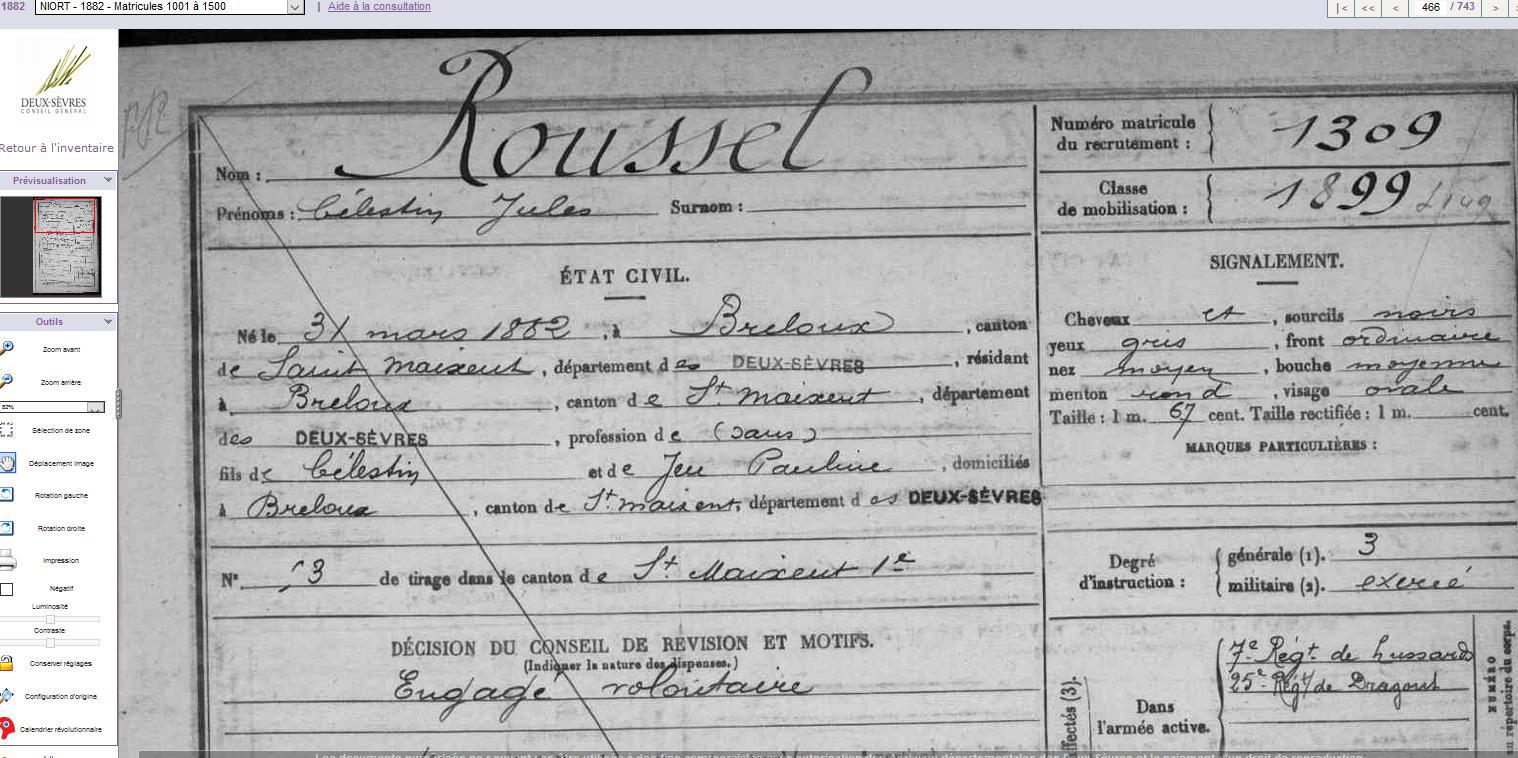 1882 NIORT - 1882 - Matricules 1001 à 1500 | Aide à la consultation |< << < 466 / 743 >
DEUX-SÈVRES
CONSEIL GÉNÉRAL
Retour à l'inventaire
Prévisualisation
Outils
Zoom avant
Zoom arrière
82%
Sélection de zone
Déplacement image
Rotation gauche
Rotation droite
Impression
Négatif
Luminosité
Contraste
Conserver réglages
Configuration d'origine
Calendrier révolutionnaire
Nom : Roussel
Prénoms : Célestin Jules Surnom :
ÉTAT CIVIL.
Né le 31 mars 1882, à Breloux, canton
de Saint Maixent, département des DEUX-SÈVRES, résidant
à Breloux, canton de St Maixent, département
des DEUX-SÈVRES, profession de (sans)
fils de Célestin et de Jeu Pauline, domiciliés
à Breloux, canton de St Maixent, département des DEUX-SÈVRES
N° 3 de tirage dans le canton de St Maixent 1e
DÉCISION DU CONSEIL DE REVISION ET MOTIFS.
(Indiquer la nature des dispenses.)
Engagé volontaire
Numéro matricule
du recrutement : 1309
Classe
de mobilisation : 1899
SIGNALEMENT.
Cheveux et, sourcils noirs
yeux gris, front ordinaire
nez moyen, bouche moyenne
menton rond, visage ovale
Taille : 1 m. 67 cent. Taille rectifiée : 1 m. cent.
MARQUES PARTICULIÈRES :
Degré
d'instruction :
générale (1). 3
militaire (2). exercé
Dans
l'armée active.
7e Régt de hussards
25e Régt de Dragons
NUMÉRO
au répertoire du corps.